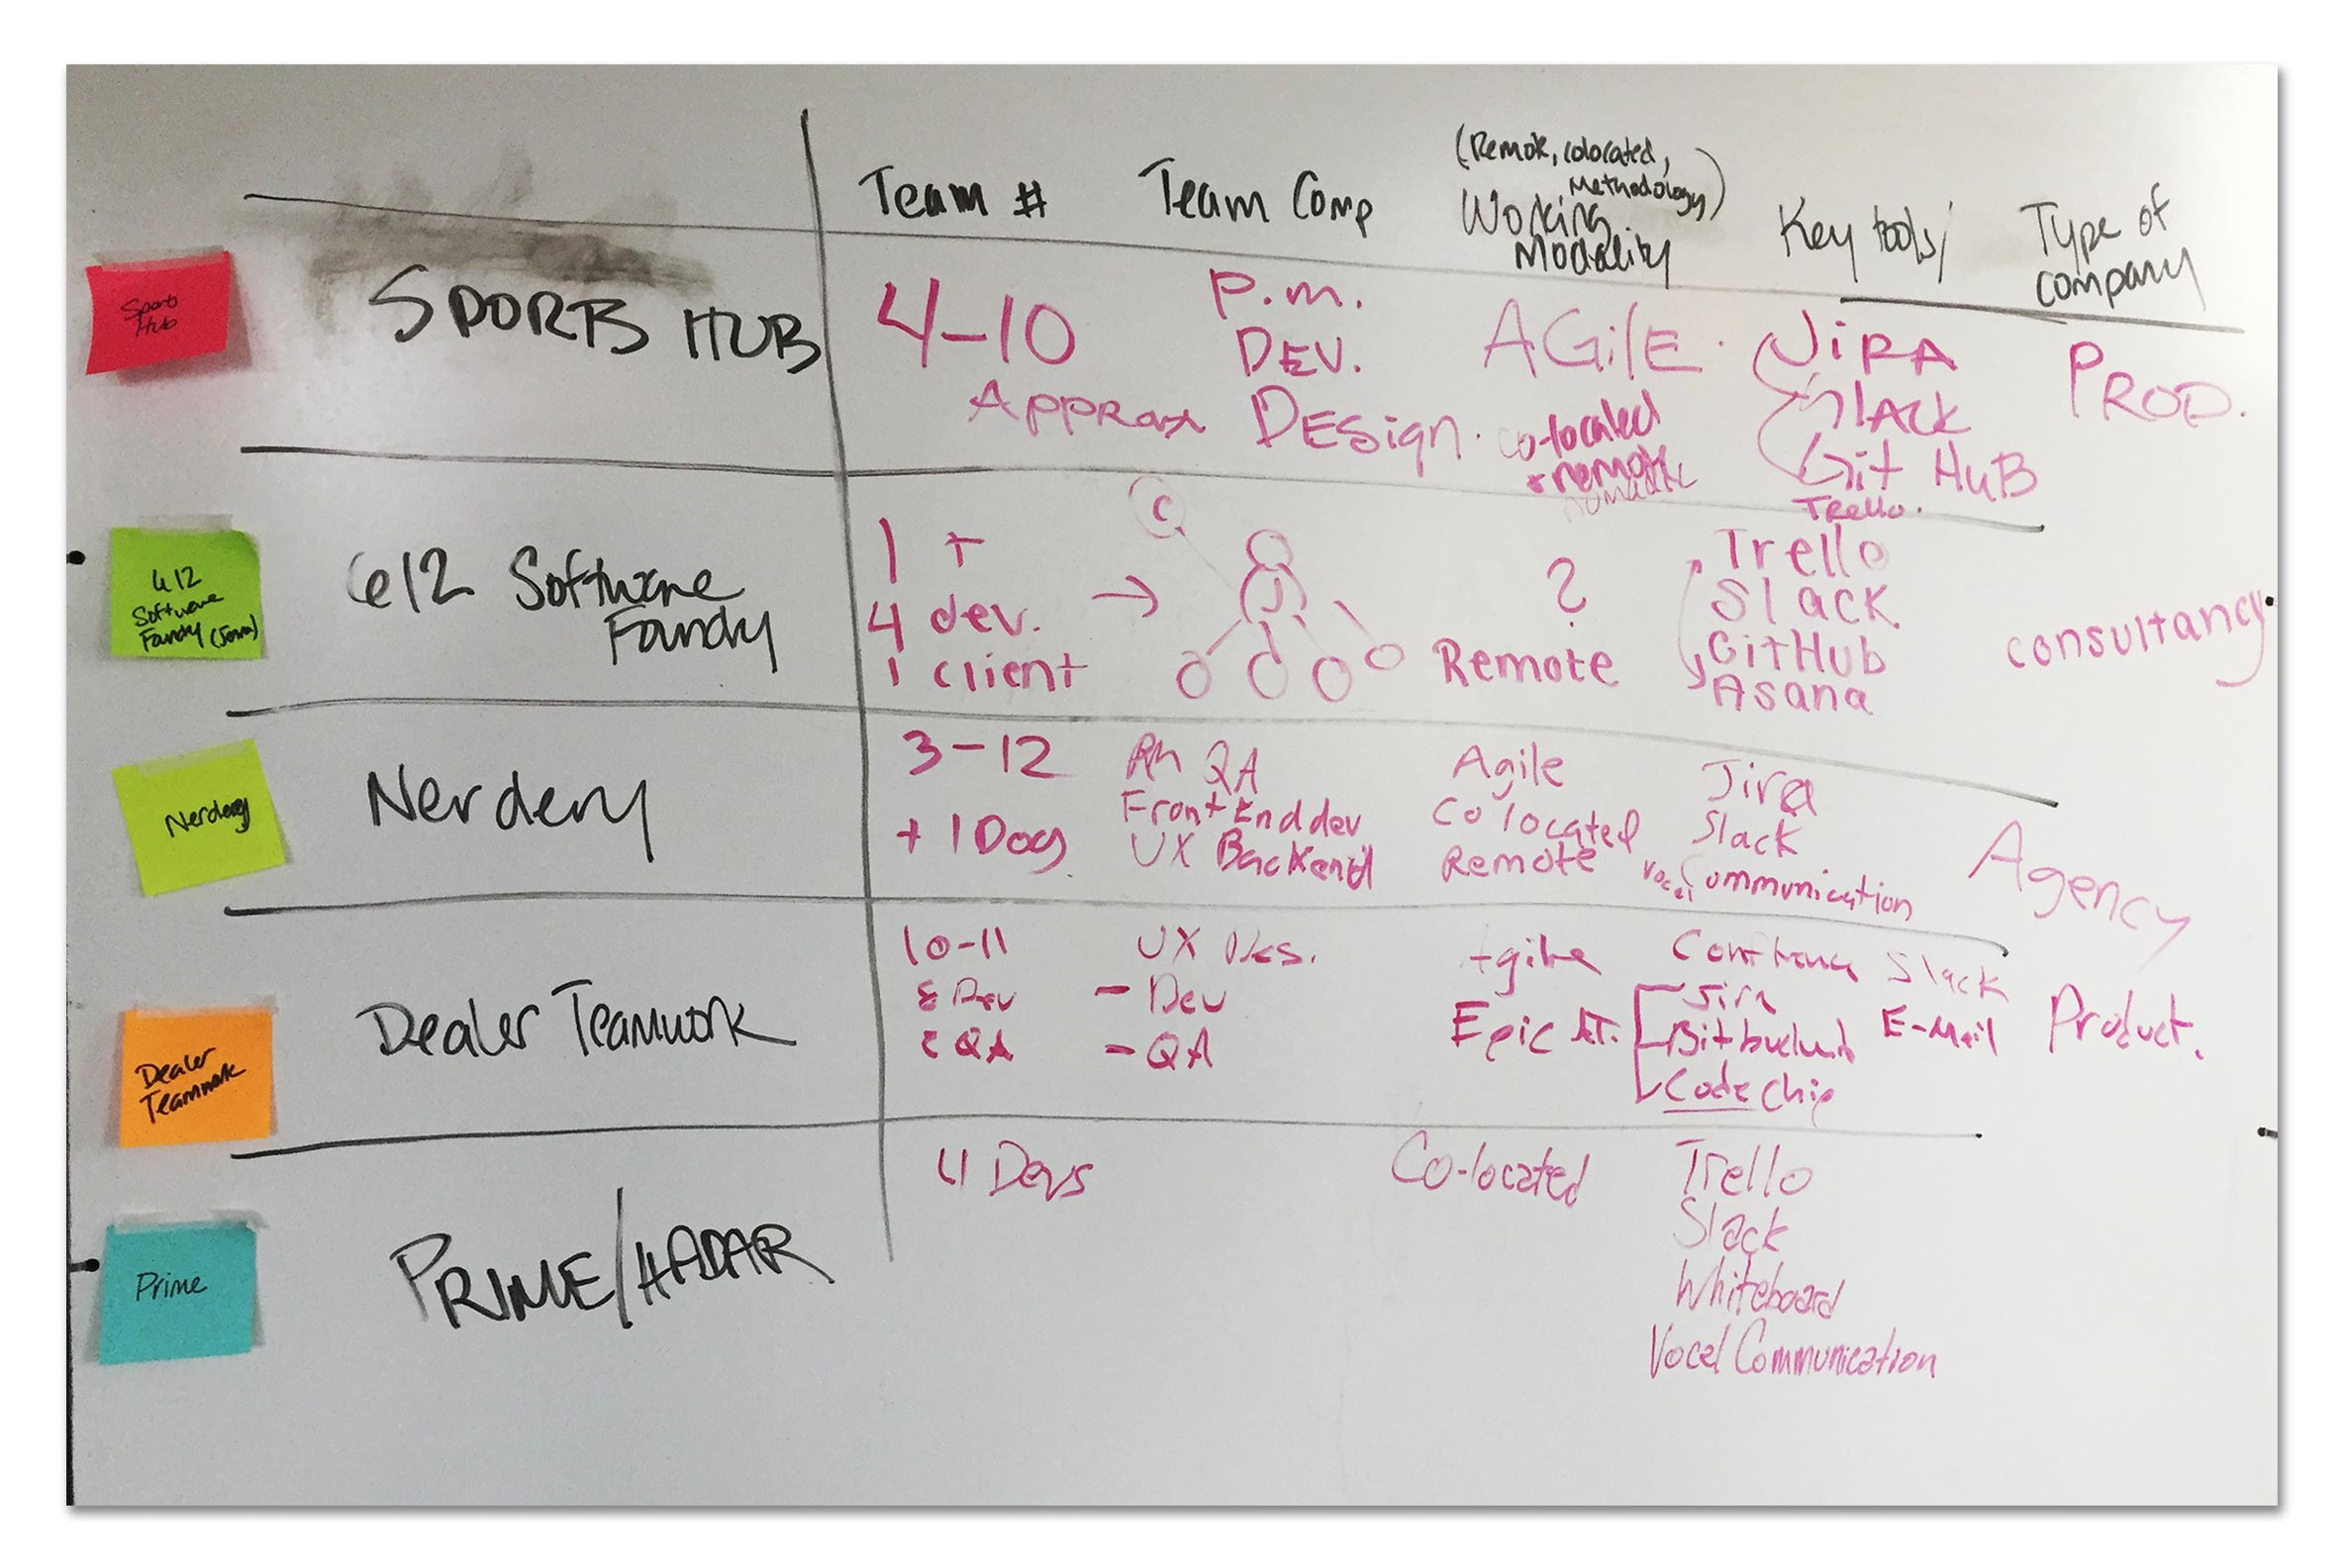 (Remote, colocated,
Methodology)
Team # Team Comp Working Modality Key tools/ Type of company
Sports
Hub
SPORTS HUB
4-10
Approx
P.M.
DEV.
DESign.
AGilE.
co-located
+ remote
JiRA
Slack
Git HuB
Trello.
PROD.
612
Software
Foundry
612 Software
Foundry
1 +
4 dev.
1 client
→
C
J
?
Remote
Trello
Slack
GitHub
Asana
consultancy
Nerdery
Nerdery
3-12
+ 1 Dog
QA
Front End dev
UX Backend
Agile
Colocated
Remote
Jira
Slack
Vocal Communication
Agency
Dealer
Teamwork
Dealer Teamwork
10-11
Dev
QA
UX Des.
- Dev
- QA
Agile
Epic
Slack
Jira
E-Mail
Code Chip
Product.
Prime
PRIME/HADAR
4 Devs
Co-located
Trello
Slack
Whiteboard
Vocal Communication